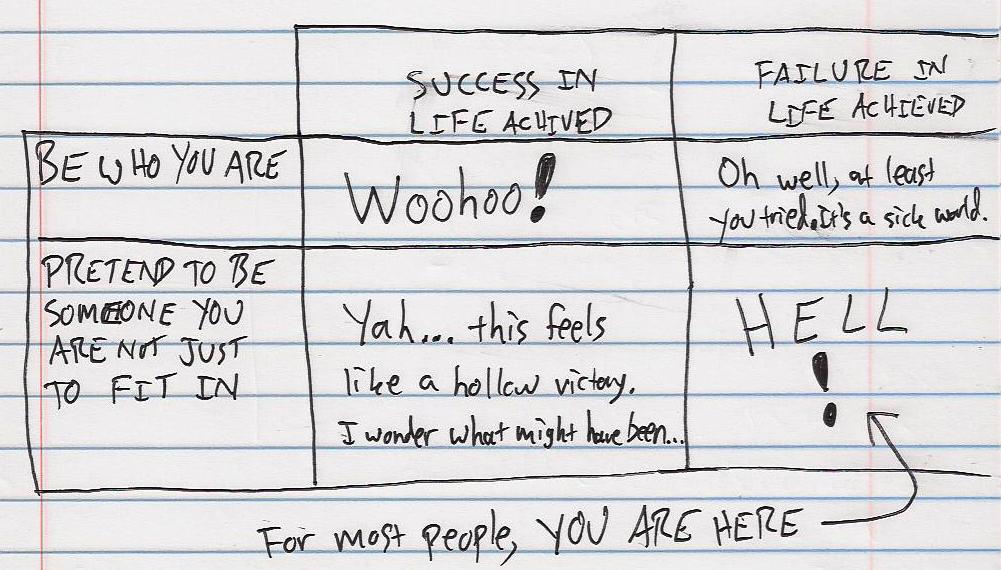 SUCCESS IN
LIFE ACHIVED
FAILURE IN
LIFE ACHIEVED
BE WHO YOU ARE
Woohoo!
Oh well, at least
you tried. It's a sick world.
PRETEND TO BE
SOMEONE YOU
ARE NOT JUST
TO FIT IN
Yah... this feels
like a hollow victory.
I wonder what might have been...
HELL
!
For most people, YOU ARE HERE